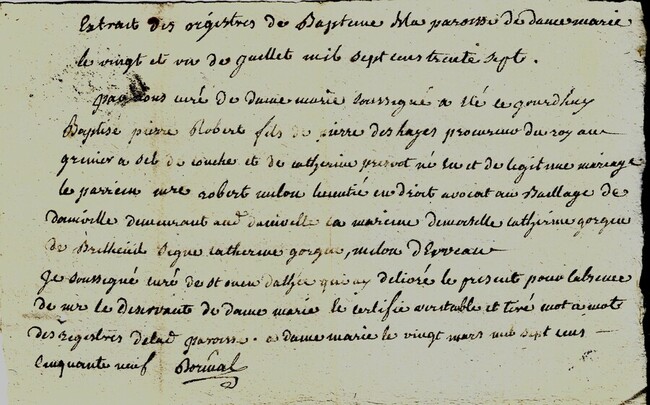 Extrait des régistres de Bapteme de la paroisse de dame marie
le vingt et un de juillet mil sept cens trente sept.
par nous curé de dame marie soussigné a été ce jourdhuy
Baptisé pierre Robert fils de pierre des hayes procureur du roy au
grenier a sel de conche et de catherine prevot né en et de legitime mariage
le parrein mre robert milon licentié en droit avocat au Baillage de
damville demeurant aud damville la mareine demoiselle catherine gorgeu
de Bretheuil signé catherine gorgeu, milon
Je soussigné curé de st ouen dathée qui ay delivré le present pour labsence
de mr le desservant de dame marie le certifie veritable et tiré mot a mot
des registres de lad paroisse. a dame marie le vingt mars mil sept cens
Cinquante neuf